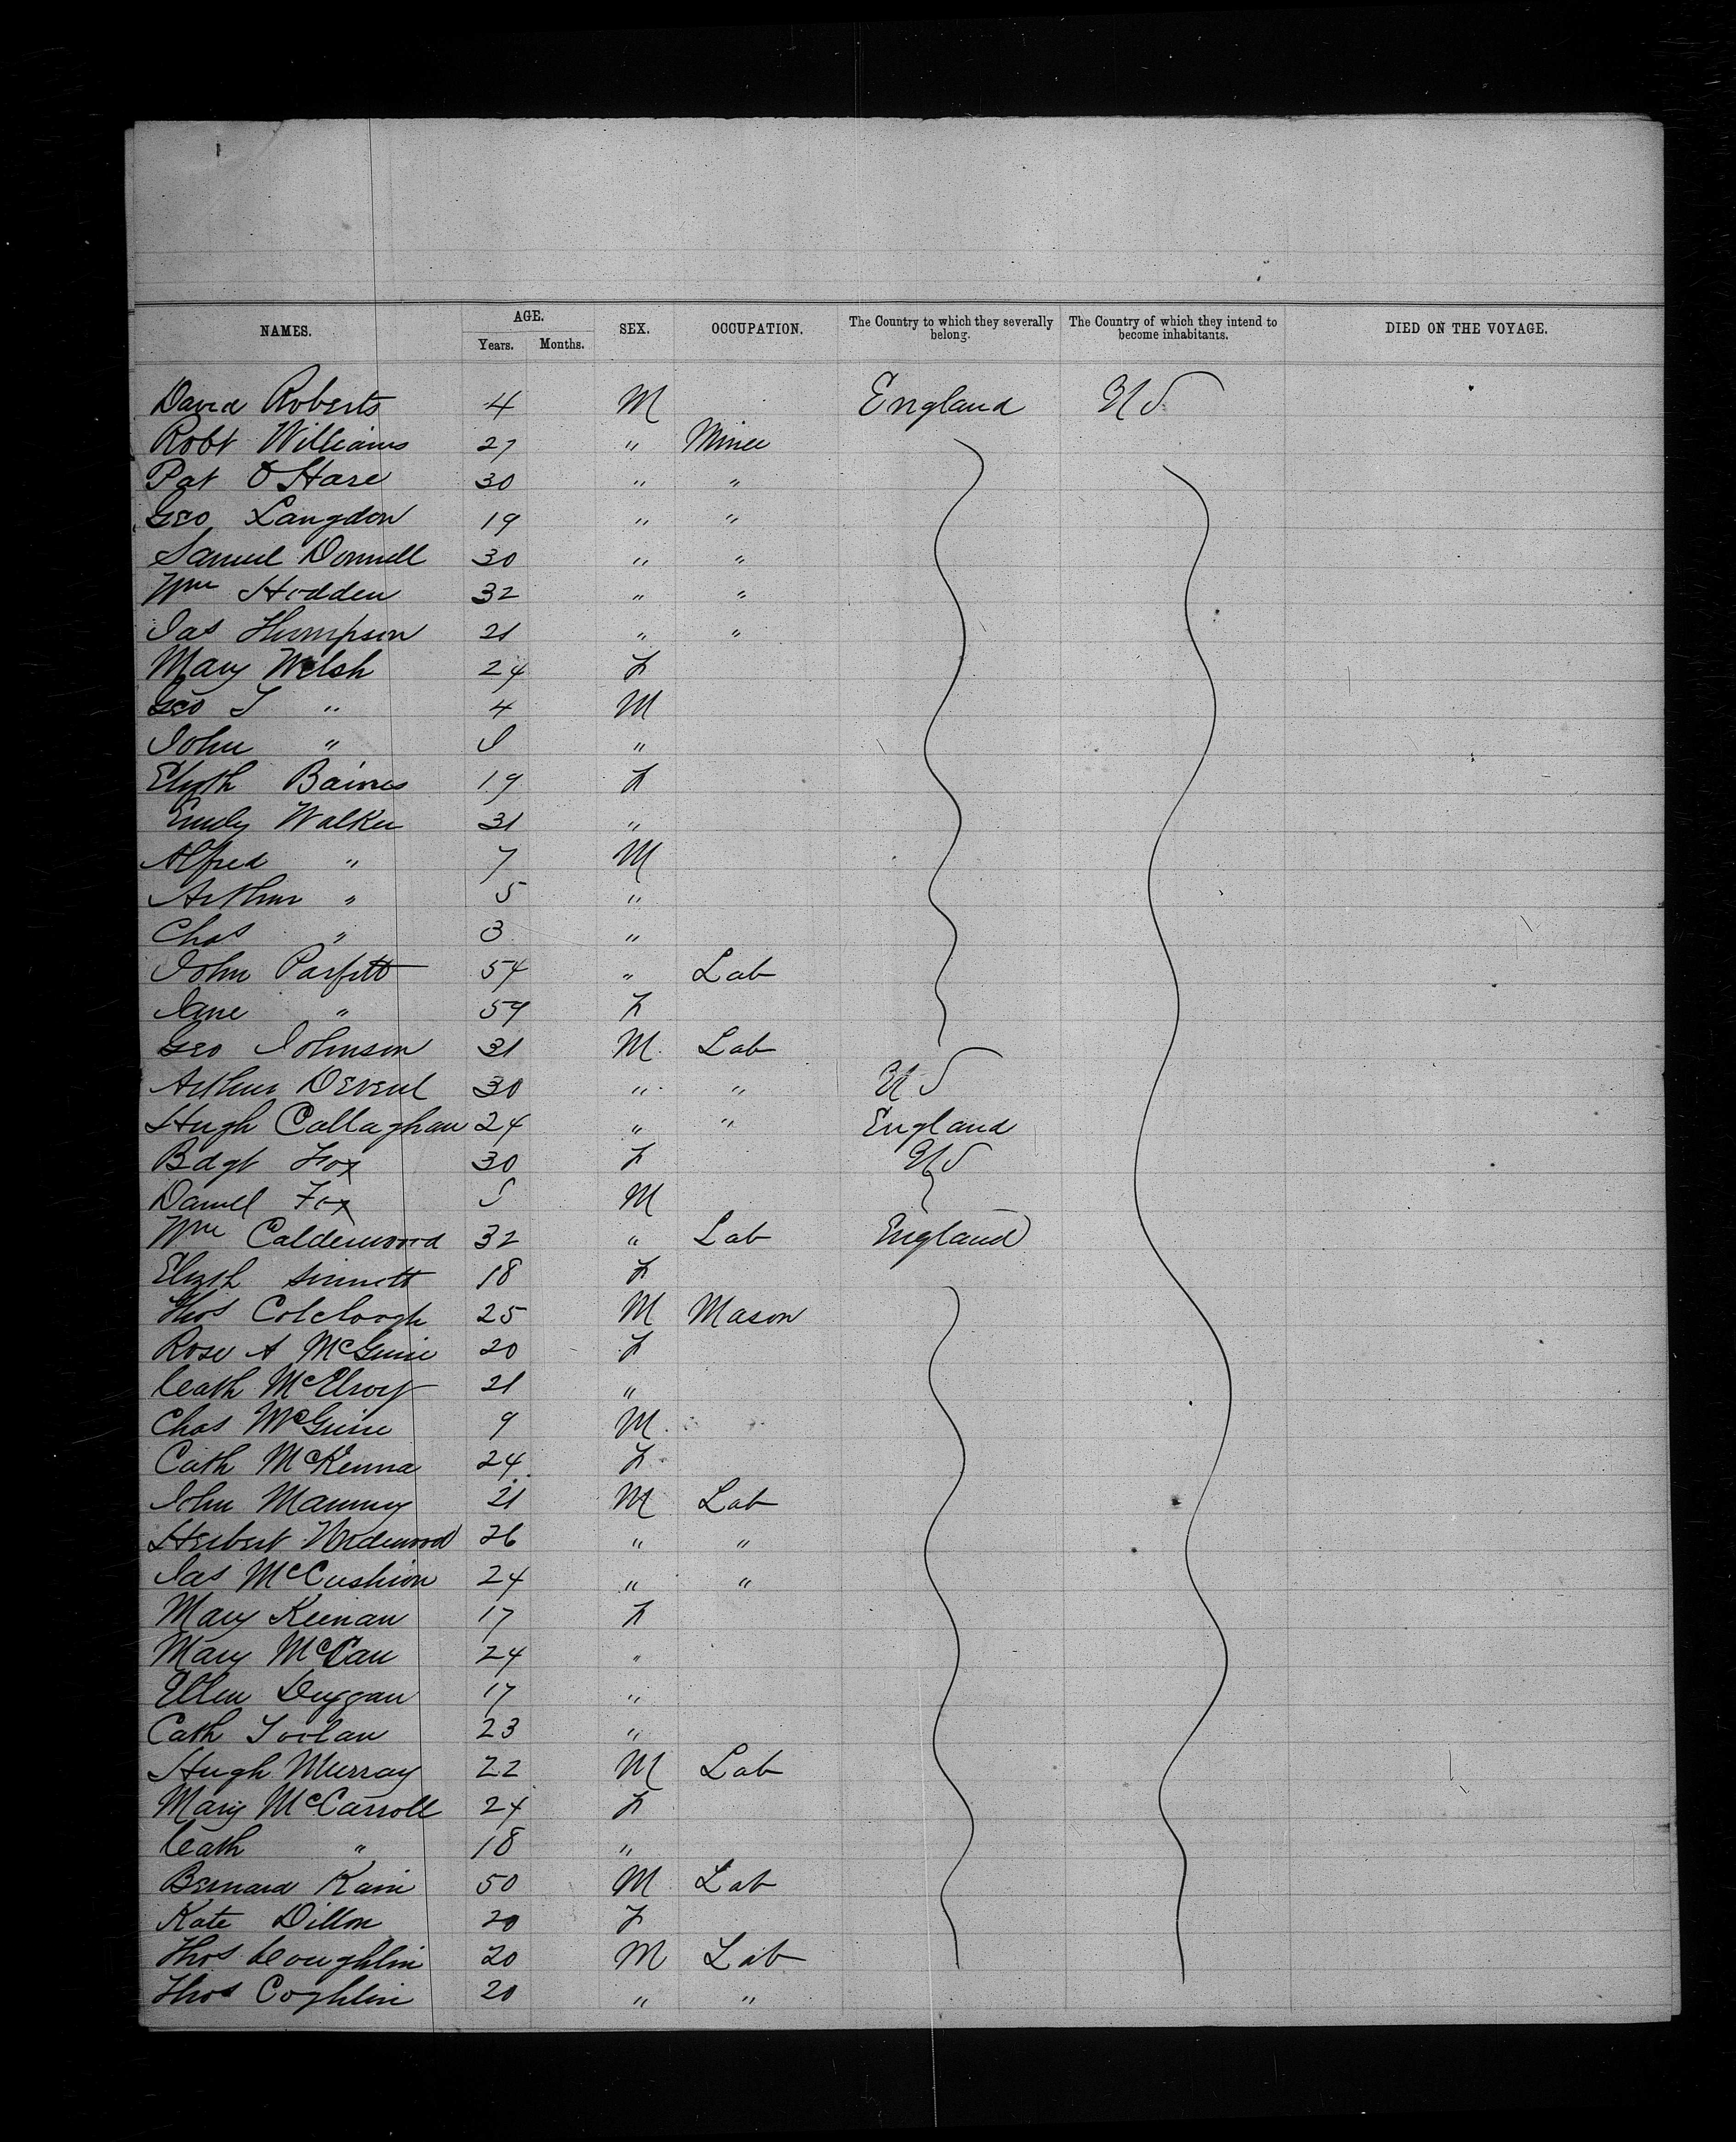 NAMES. AGE. SEX. OCCUPATION. The Country to which they severally belong. The Country of which they intend to become inhabitants. DIED ON THE VOYAGE.
Years. Months.
David Roberts 4 M England U S
Robt Williams 27 " Miner
Pat O'Hare 30 " "
Geo Langdon 19 " "
Samuel Donnell 30 " "
Wm Hodden 32 " "
Jas Thompson 21 " "
Mary Welsh 24 F
Geo T " 4 M
John " "
Elizth Baines 19 F
Emily Walker 31 "
Alfred " 7 M
Arthur " 5 "
Chas " 3 "
John Parfitt 54 " Lab
Jane " 59 F
Geo Johnson 31 M Lab
Arthur 30 " " U S
Hugh Callaghan 24 " " England
Bdgt Fox 30 F U S
Daniel Fox M
Wm Calderwood 32 " Lab England
Elizth Sinnett 18 F
Thos Colclough 25 M Mason
Rose A McGuire 20 F
Cath McElroy 21 "
Chas McGuire 9 M
Cath McKenna 24 F
John Manning 21 M Lab
Herbert 26 " "
Jas McCushion 24 " "
Mary Keenan 17 F
Mary McCan 24 "
Ellen Duggan 17 "
Cath Toolan 23 "
Hugh Murray 22 M Lab
Mary McCarroll 24 F
Cath " 18 "
Bernard Kain 50 M Lab
Kate Dillon 20 F
Thos Coughlin 20 M Lab
Thos Coghlin 20 " "